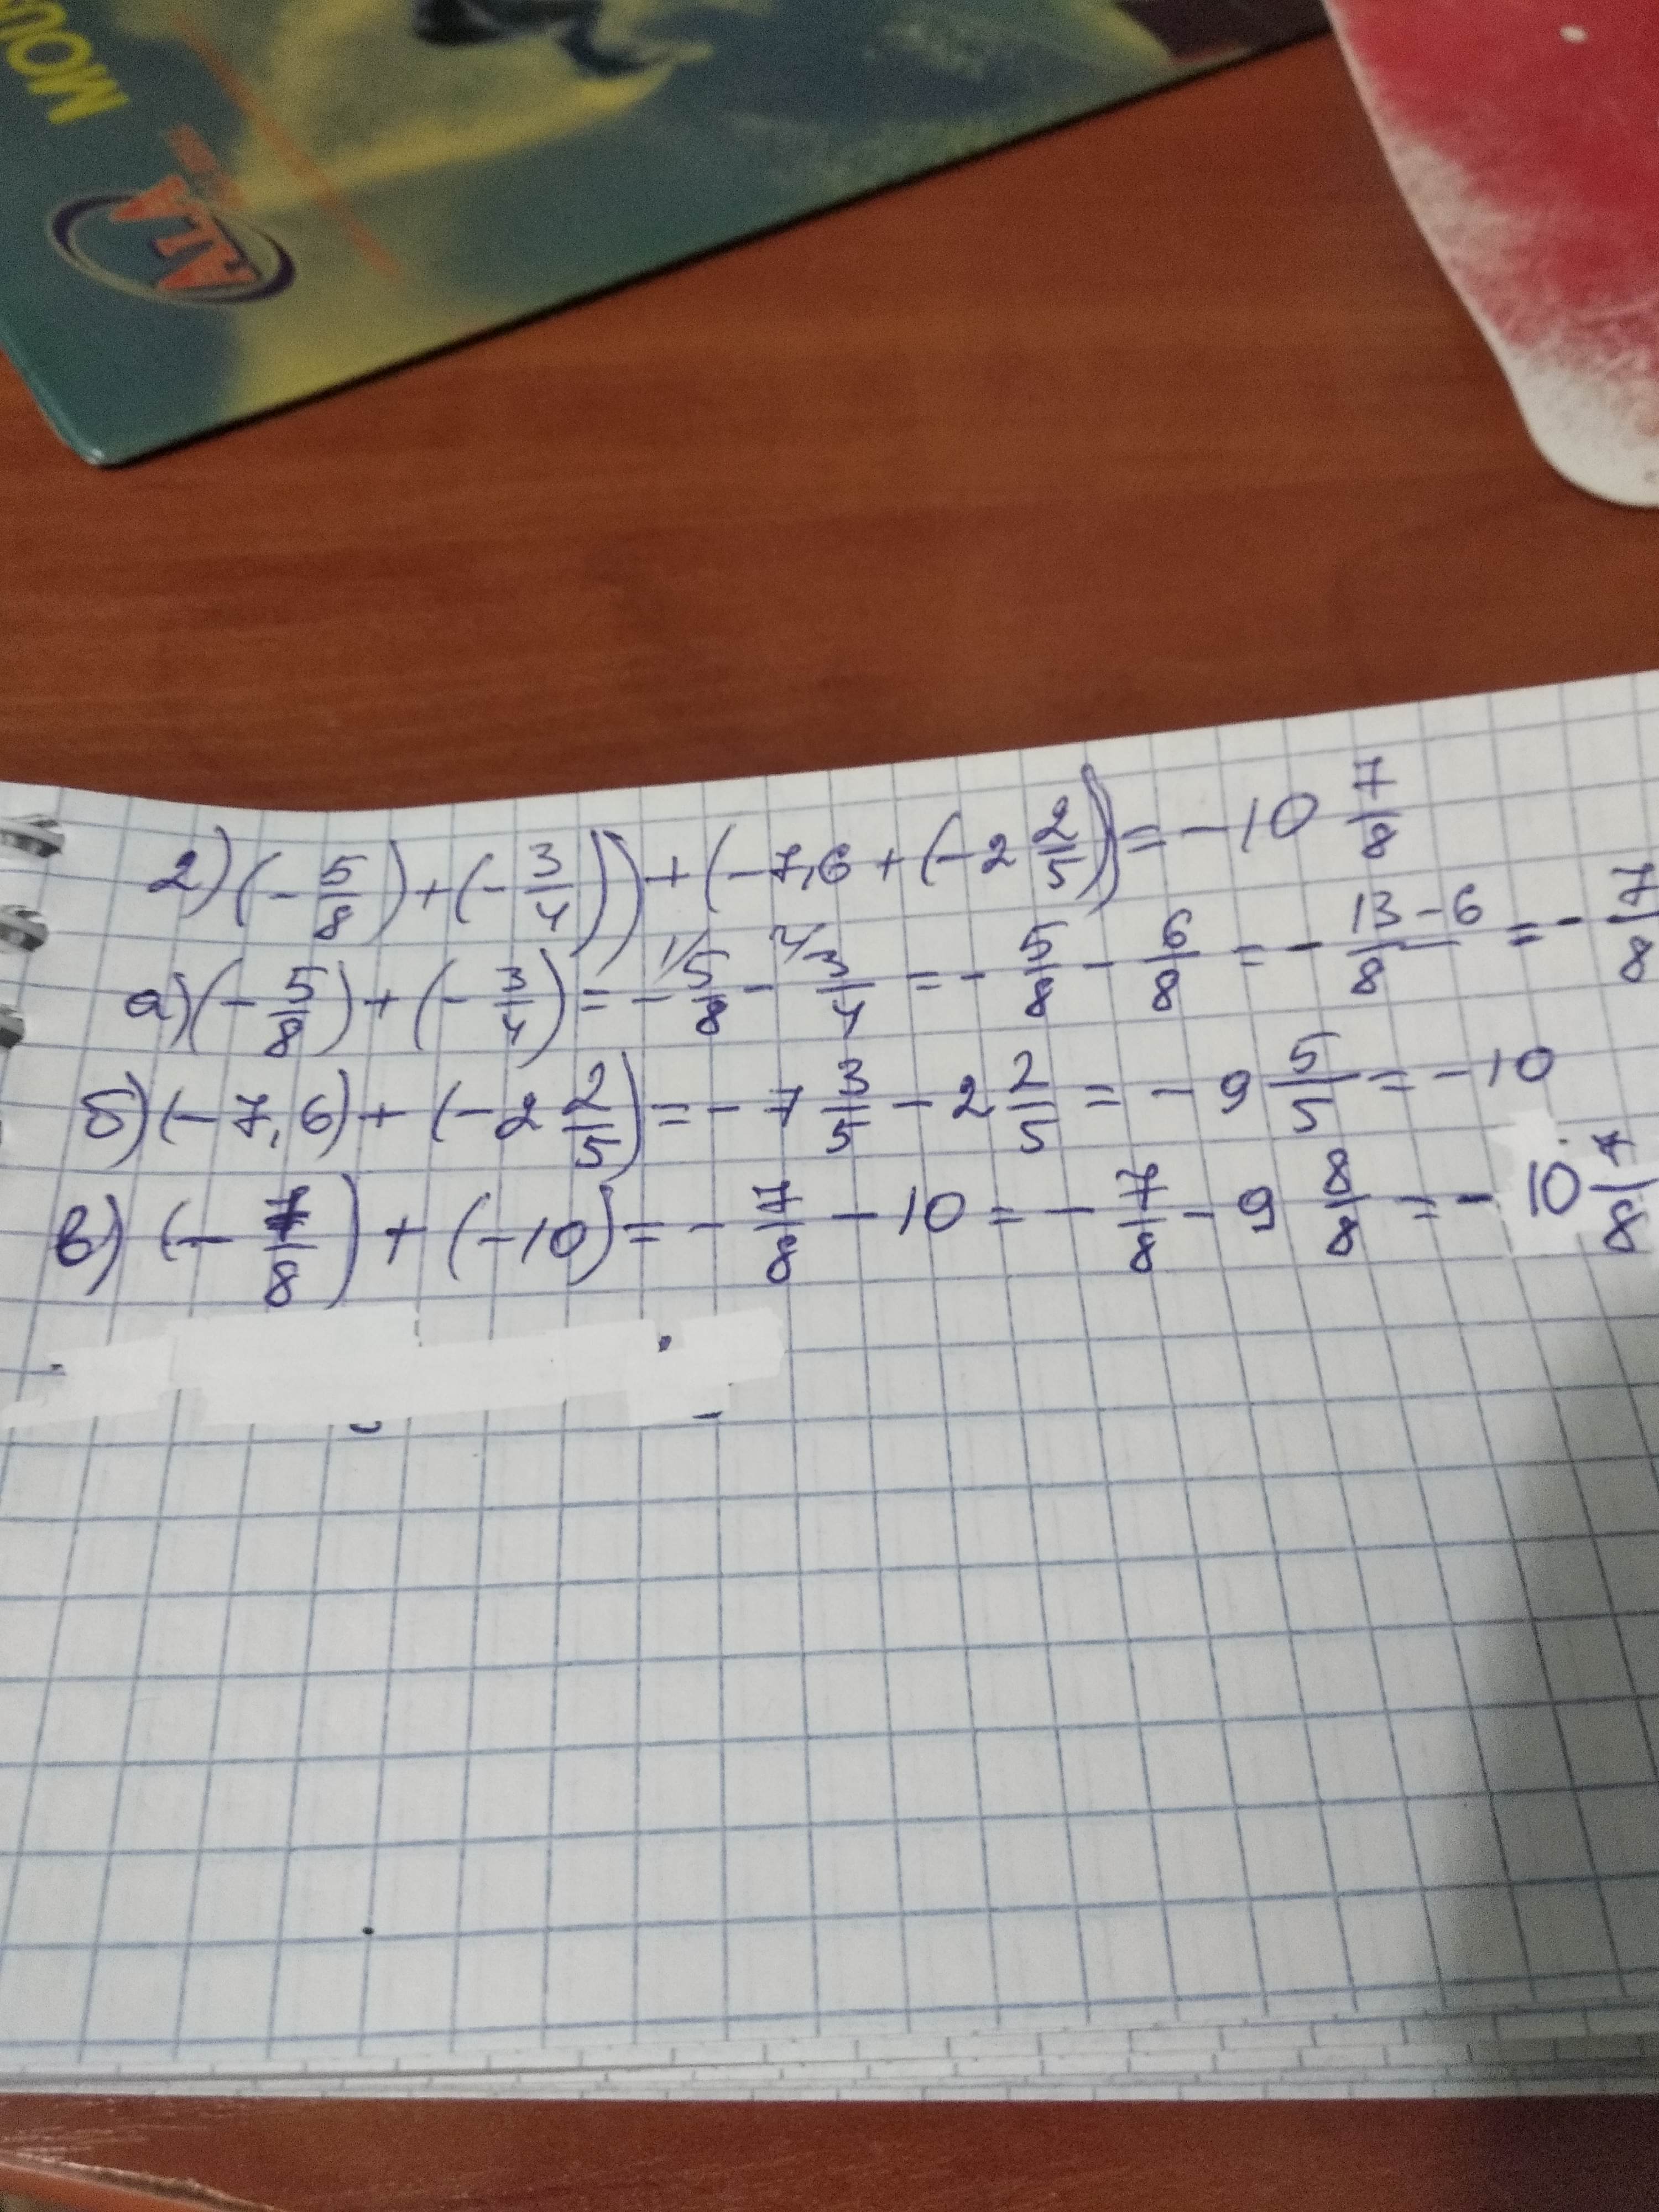 MOU
ALA
2) (-5/8)+(-3/4))+(-7,6+(-2 2/5))=-10 7/8
а) (-5/8)+(-3/4)=-1/5/8-2/3/4=-5/8-6/8=-13-6/8=-7/8
б) (-7,6)+(-2 2/5)=-7 3/5-2 2/5=-9 5/5=-10
в) (-7/8)+(-10)=-7/8-10=-7/8-9 8/8=-10 7/8